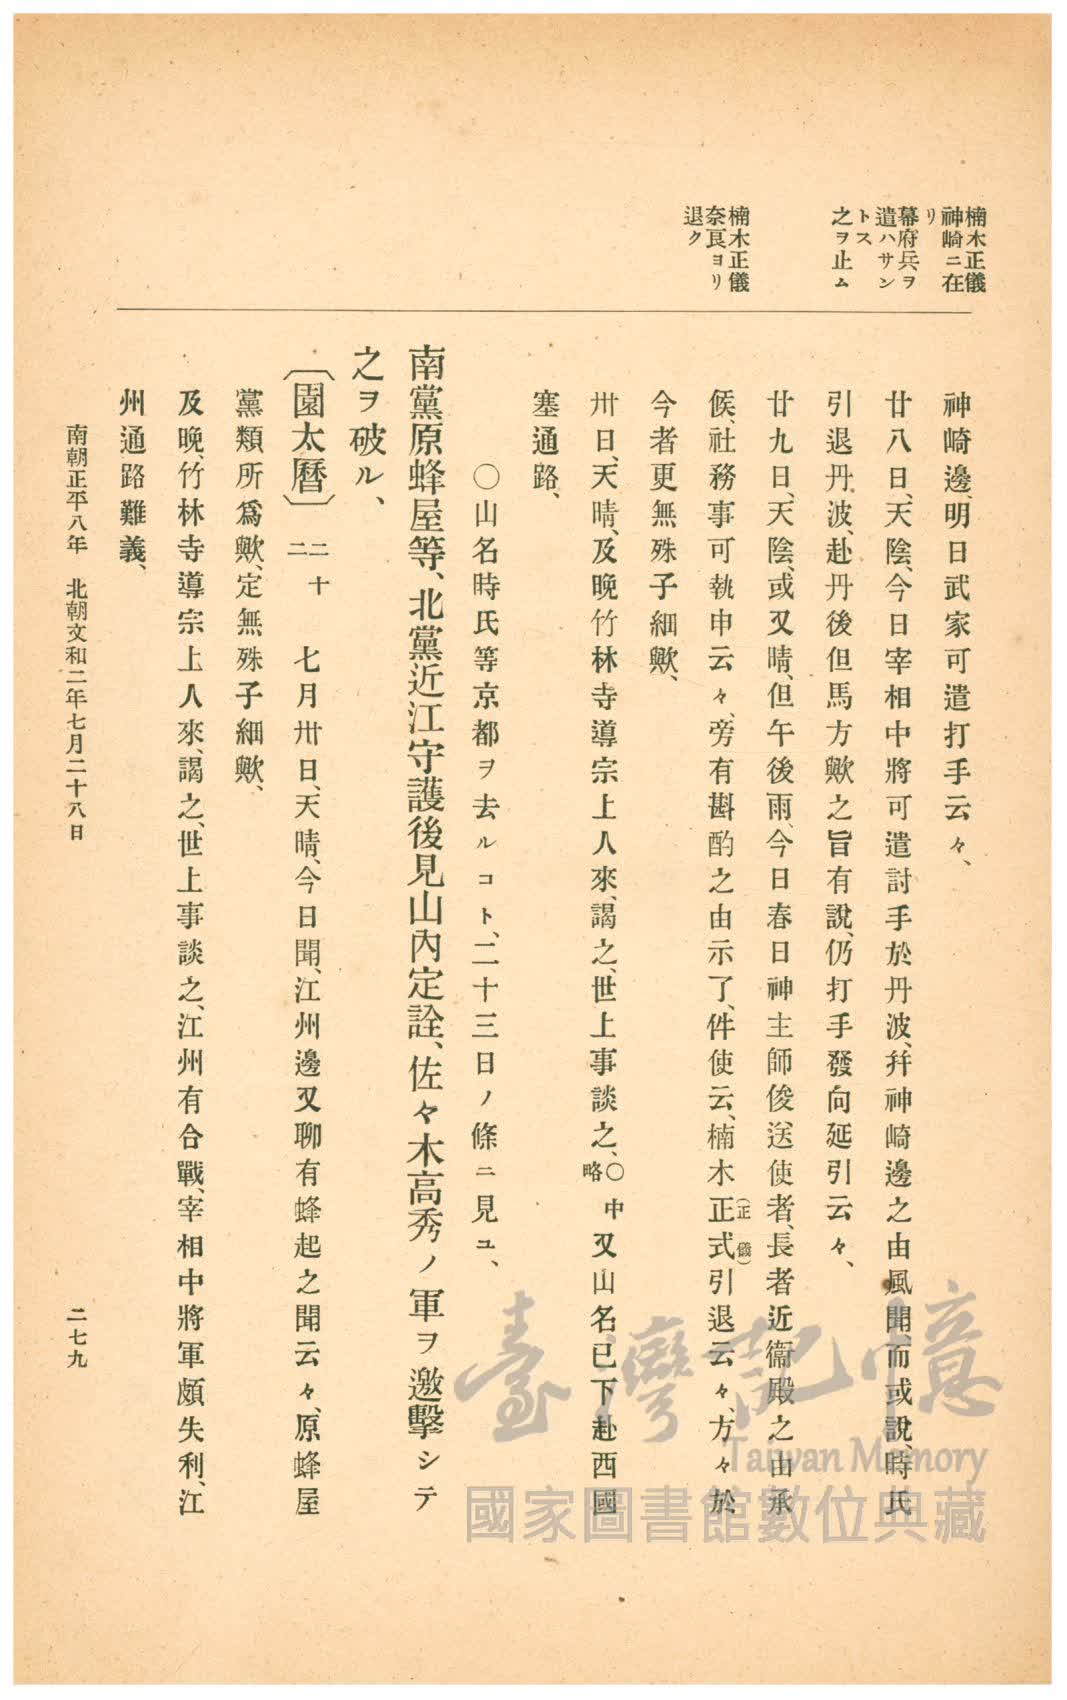 楠木正儀
神崎ニ在
リ
幕府兵ヲ
遣ハサン
トス
之ヲ止ム
楠木正儀
奈良ヨリ
退ク
神崎邊、明日武家可遣打手云々、
廿八日、天陰、今日宰相中將可遣討手於丹波、幷神崎邊之由風聞、而或說、時氏
引退丹波、赴丹後但馬方歟之旨有說、仍打手發向延引云々、
廿九日、天陰、或又晴、但午後雨、今日春日神主師俊送使者、長者近衞殿之由承
候、社務事可執申云々、旁有斟酌之由示了、件使云、楠木正式(正儀)引退云々、方々於
今者更無殊子細歟、
卅日、天晴、及晚竹林寺導宗上人來、謁之、世上事談之、〇中略又山名已下赴西國
塞通路、
〇山名時氏等京都ヲ去ルコト、二十三日ノ條ニ見ユ、
南黨原蜂屋等、北黨近江守護後見山內定詮、佐々木高秀ノ軍ヲ邀擊シテ
之ヲ破ル、
〔園太曆〕二十二 七月卅日、天晴、今日聞、江州邊又聊有蜂起之聞云々、原蜂屋
黨類所爲歟、定無殊子細歟、
及晚、竹林寺導宗上人來、謁之、世上事談之、江州有合戰、宰相中將軍頗失利、江
州通路難義、
南朝正平八年 北朝文和二年七月二十八日
二七九
臺灣記憶
Taiwan Memory
國家圖書館數位典藏